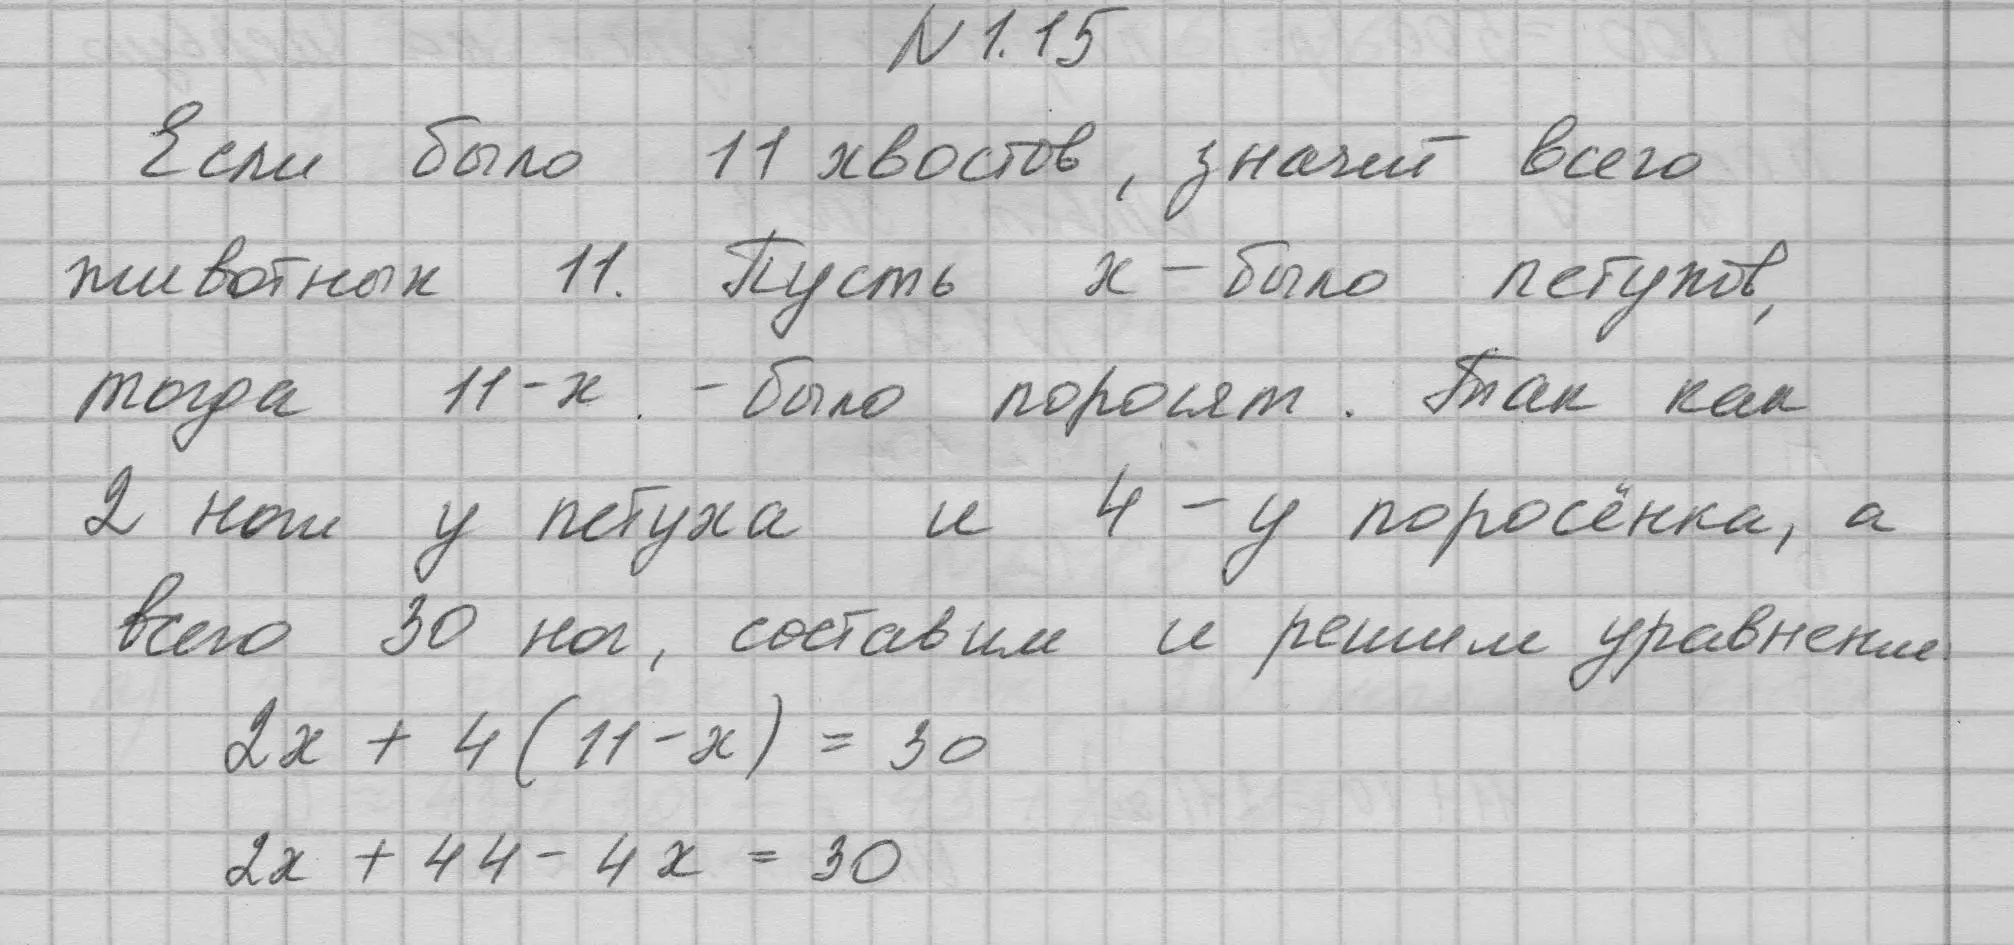 N 1.15
Если было 11 хвостов, значит всего
животных 11. Пусть x - было петухов,
тогда 11-x. - было поросят. Так как
2 ноги у петуха и 4 - у поросёнка, а
всего 30 ног, составим и решим уравнение
2x + 4(11-x) = 30
2x + 44 - 4x = 30